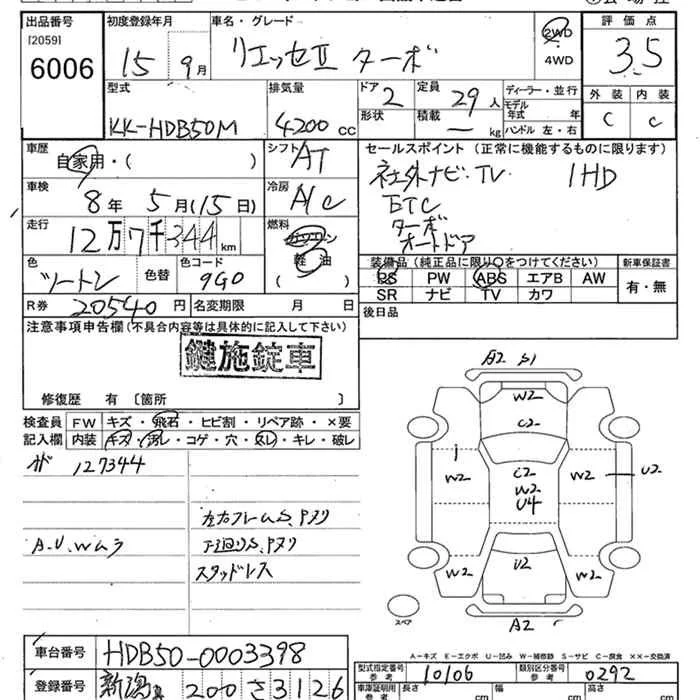 出品番号 初度登録年月 車名・グレード 評価点
[2059]
6006 15 9月 リエッセⅡ ターボ 2WD 4WD 3.5
型式 排気量 ドア 2 定員 29人 ディーラー・並行 外装 内装
KK-HDB50M 4200cc 形状 積載 ー kg モデル年式 年 ハンドル 左・右 C C
車歴 自家用・( ) シフト AT セールスポイント(正常に機能するものに限ります)
社外ナビ・TV 1HD
車検 8年 5月(15日) 冷房 A/C ETC
ターボ
走行 12万7千344km 燃料 ガソリン 軽油 ( ) オートドア
色 ツートン 色替 色コード 9G0 装備品(純正品に限り○をつけてください) 新車保証書
PS PW ABS エアB AW 有・無
SR ナビ TV カワ
R券 20540円 名変期限 月 日 後日品
注意事項申告欄(不具合内容等は具体的に記入して下さい)
鍵施錠車
修復歴 有〔箇所 〕
検査員 FW キズ・飛石・ヒビ割・リペア跡・×要
記入欄 内装 キズ・汚レ・コゲ・穴・スレ・キレ・破レ
127344
左右フレームS.Pヌリ
A.U.Wムラ 下廻りS.Pヌリ
スタッドレス
A2 S1
W2
C2
W2 C2 W2 U2
W2
U4
W2 U2 W2
A2
スペア
A-キズ E-エクボ U-凹み W-補修跡 S-サビ C-腐食 ××-交換済
車台番号 HDB50-0003398
型式指定番号 参考 10106 類別区分番号 参考 0292
登録番号 新潟 200 さ 3126
車庫証明用 参考 長さ cm cm cm